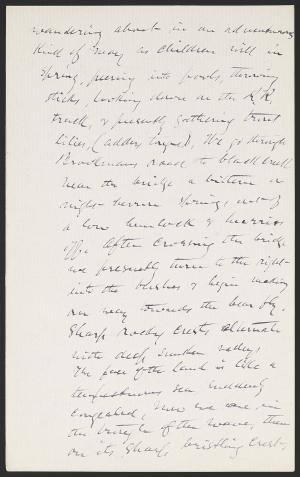 wandering about in an adventurous
kind of way as children will in
spring, peering into pools, throwing
sticks, looking down on the R.R.
track, & presently gathering trout
lilies, (adders tongue). We go through
road to
Near the bridge a bittern or
night-heron springs out of
a low hemlock & hurries
off. After crossing the bridge
we presently turn to the right
into the bushes & begin making
our way towards the
Sharp rocky crests alternate
with deep sunken valleys
The face of the land is like a
tempestuous sea suddenly
congealed, Now we are in
the trough of the wave, then
on its sharp, bristling crest,